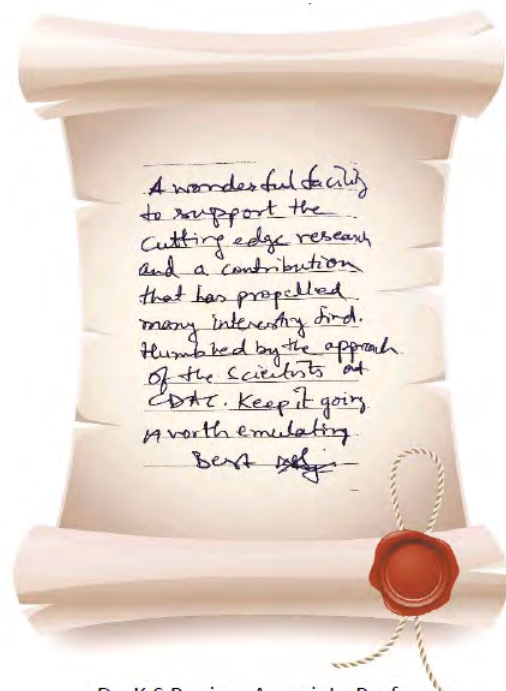 A wonderful facility
to support the
cutting edge research
and a contribution
that has propelled
many interesting find.
Humbled by the approach
of the Scientists at
CDAC. Keep it going
worth emulating
Best